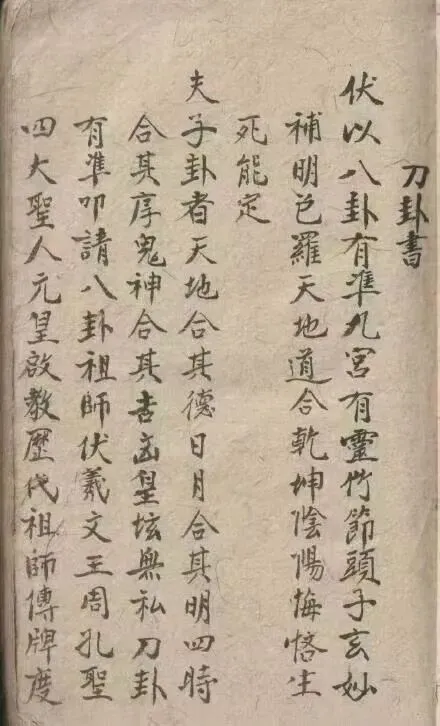 刀卦書
伏以八卦有準九宮有靈竹節頭子玄妙
補明包羅天地道合乾坤陰陽悔悋生
死能定
夫子卦者天地合其德日月合其明四時
合其序鬼神合其吉凶皇坛無私刀卦
有準叩請八卦祖師伏羲文王周孔聖
四大聖人元皇啟教歷代祖師傳牌度